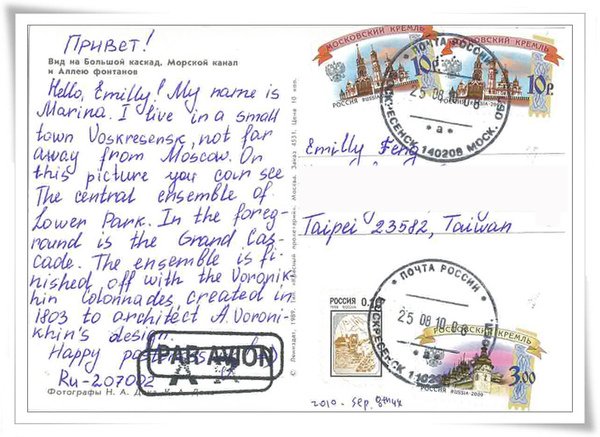 Привет!
Вид на Большой каскад, Морской канал
и Аллею фонтанов
Hello, Emilly! My name is
Marina. I live in a small
town Voskresensk, not far
away from Moscow. On
this picture you can see
The central ensemble of
Lower Park. In the foreg-
round is the Grand Cas-
cade. The ensemble is fi-
nished off with the Voronik-
hin Colonnades, created in
1803 to architect A. Voroni-
khin's design.
Happy
Ru-207002
Фотографы Н. А.
PAR AVION
МОСКОВСКИЙ КРЕМЛЬ
10р.
РОССИЯ RUSSIA
МОСКОВСКИЙ КРЕМЛЬ
10р.
RUSSIA-2009
ПОЧТА РОССИИ
25 08 10 08
140208 МОСК. ОБЛ.
*а*
Emilly Feng
Taipei 23582, Taiwan
ПОЧТА РОССИИ
25 08 10 08
ВОСКРЕСЕНСК
РОССИЯ
РОСТОВСКИЙ КРЕМЛЬ
3.00
РОССИЯ RUSSIA-2009
2010. Sep.